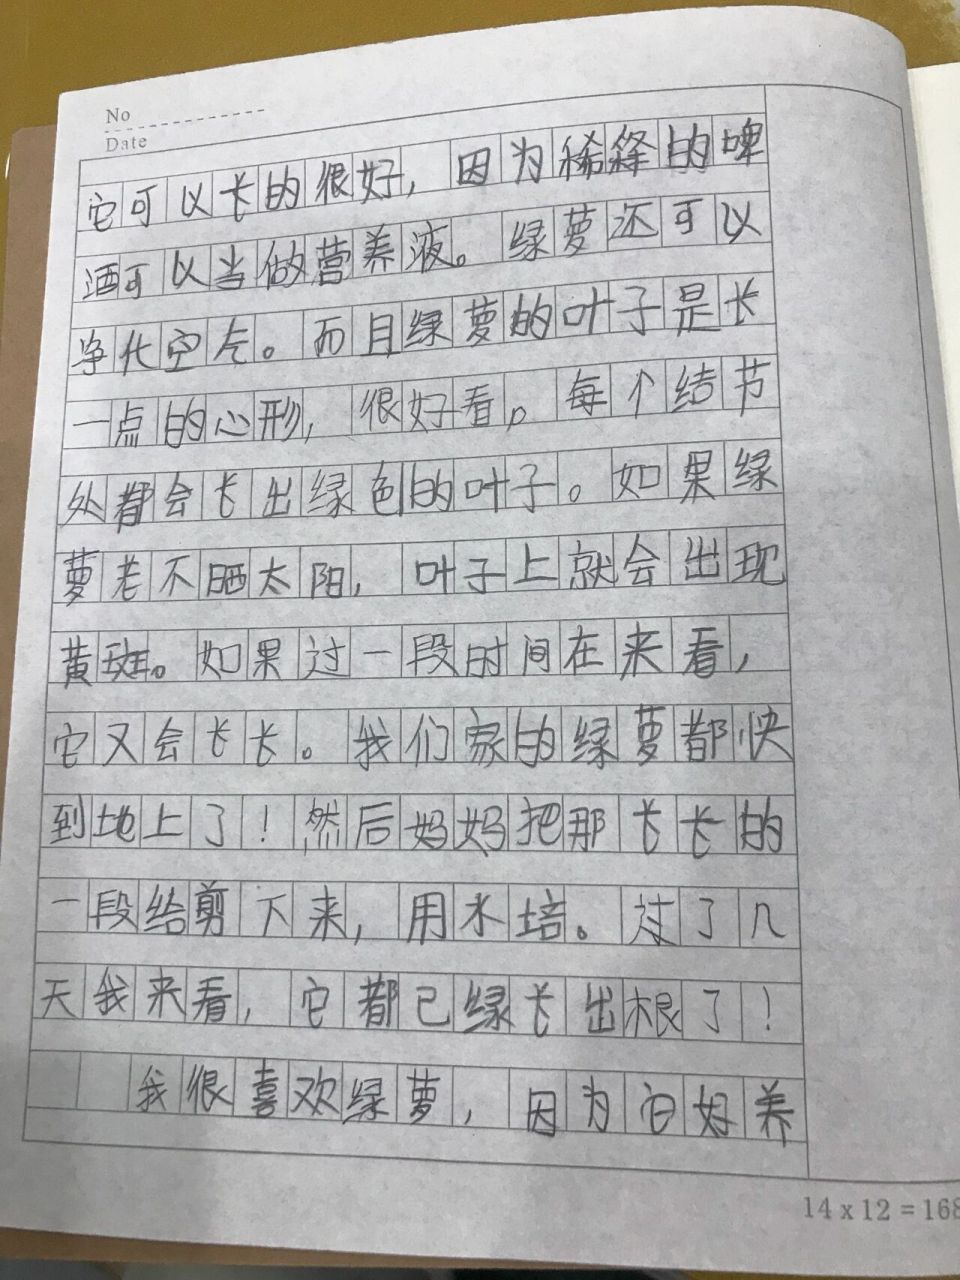 No
Date
它可以长的很好，因为稀释的啤
酒可以当做营养液。绿萝还可以
净化空气。而且绿萝的叶子是长
一点的心形，很好看。每个结节
处都会长出绿色的叶子。如果绿
萝老不晒太阳，叶子上就会出现
黄斑。如果过一段时间在来看，
它又会长长。我们家的绿萝都快
到地上了！然后妈妈把那长长的
一段给剪下来，用水培。过了几
天我来看，它都已绿长出根了！
我很喜欢绿萝，因为它好养
14 x 12 = 168